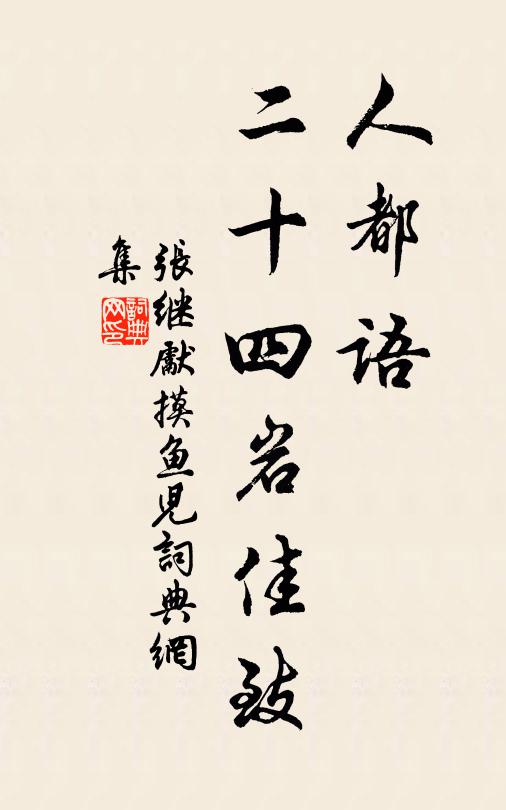 人都語
二十四岩佳致
張继獻摸鱼児詞典網
集
詞典网印